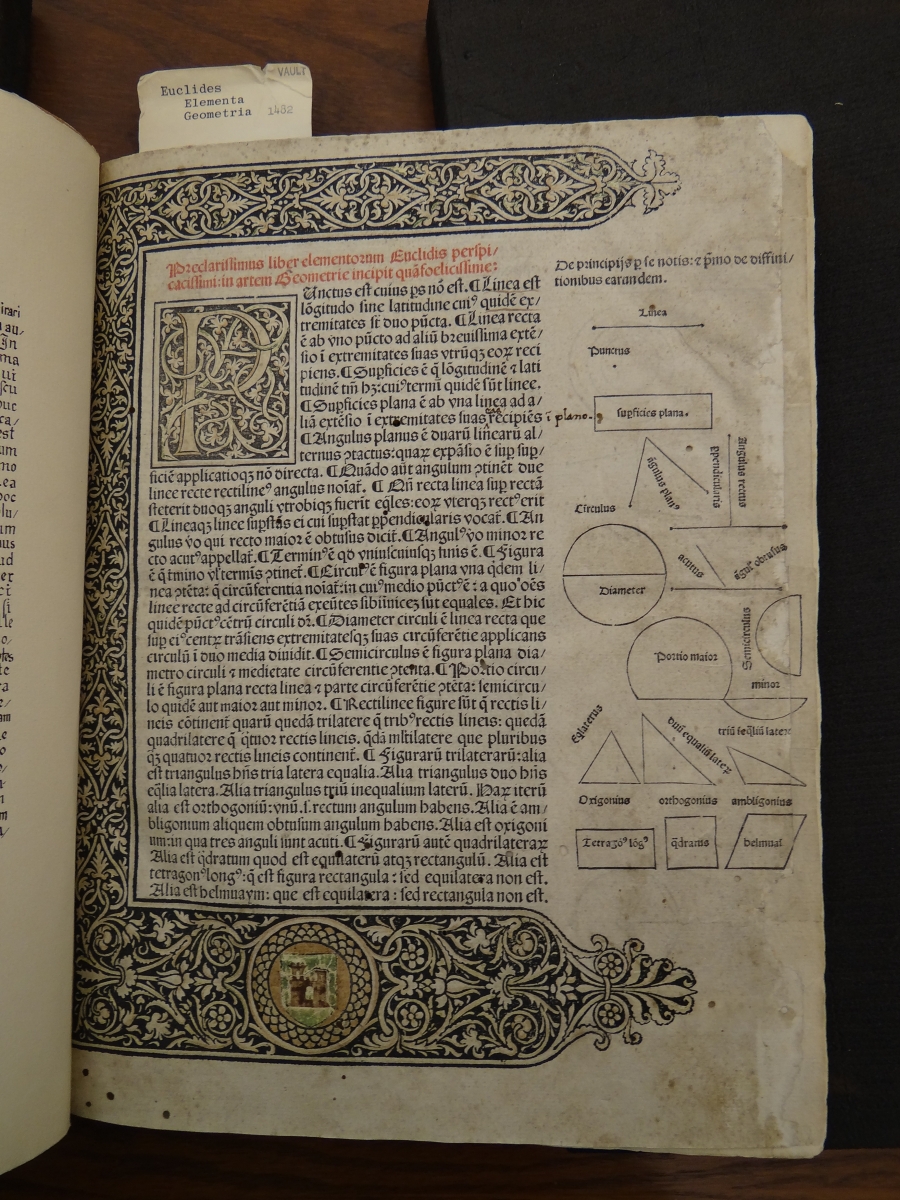 VAULT
Euclides
Elementa
Geometria 1482
Preclarissimus liber elementorum Euclidis perspi/
cacissimi: in artem Geometrie incipit quãfoelicissime:
Punctus est cuius ps nõ est. ¶ Linea est
lõgitudo sine latitudine cuiꝰ quidẽ ex/
tremitates sũt duo pũcta. ¶ Linea recta
ẽ ab vno pũcto ad aliũ breuissima extẽ/
sio ĩ extremitates suas vtrũqꝫ eoꝝ reci
piens. ¶ Supficies ẽ q̃ lõgitudinẽ ⁊ lati
tudinẽ tm̃ hꝫ: cuiꝰ termĩ quidẽ sũt linee.
¶ Supficies plana ẽ ab vna linea ad a/
liã extẽsio ĩ extremitates suas recipiẽs
¶ Angulus planus ẽ duarũ linearũ al/
ternus ꝯtactus: quaꝝ expãsio ẽ sup sup/
ficiẽ applicatioqꝫ nõ directa. ¶ Quãdo aũt angulum ꝯtinẽt due
linee recte rectilineꝰ angulus noĩat̃. ¶ Qñ recta linea sup rectã
steterit duoqꝫ anguli vtrobiqꝫ fuerĩt eq̃les: eoꝝ vterqꝫ rectꝰ erit
¶ Lineaqꝫ linee supstãs ei cui supstat ppendicularis vocat̃. ¶ An
gulus vo qui recto maior ẽ obtusus dicit̃. ¶ Angulꝰ vo minor re
cto acutꝰ appellat̃. ¶ Terminꝰ ẽ qd vniuscuiusqꝫ finis ẽ. ¶ Figura
ẽ q̃ tmino vl̃ termis ꝯtinet̃. ¶ Circulꝰ ẽ figura plana vna qdem li/
nea ꝯtẽta: q̃ circũferentia noĩat̃: in cuiꝰ medio pũctꝰ ẽ: a quo oẽs
linee recte ad circũferẽtiã exeũtes sibiĩuicẽ sũt equales. Et hic
quidẽ pũctꝰ cẽtrũ circuli dr̃. ¶ Diameter circuli ẽ linea recta que
sup eiꝰ centꝝ trãsiens extremitatesqꝫ suas circũferẽtie applicans
circulũ ĩ duo media diuidit. ¶ Semicirculus ẽ figura plana dia/
metro circuli ⁊ medietate circũferentie ꝯtenta. ¶ Portio circu/
li ẽ figura plana recta linea ⁊ parte circũferẽtie ꝯtẽta: semicircu/
lo quidẽ aut maior aut minor. ¶ Rectilinee figure sũt q̃ rectis li/
neis cõtinent̃ quarũ quedã trilatere q̃ tribꝰ rectis lineis: quedã
quadrilatere q̃ q̃tuor rectis lineis. q̃dã mltilatere que pluribus
qꝫ quatuor rectis lineis continent̃. ¶ Figurarũ trilaterarũ: alia
est triangulus hñs tria latera equalia. Alia triangulus duo hñs
eq̃lia latera. Alia triangulus triũ inequalium laterũ. Haꝝ iterũ
alia est orthogoniũ: vnũ .s. rectum angulum habens. Alia ẽ am/
bligonium aliquem obtusum angulum habens. Alia est oxigoni
um: in qua tres anguli sunt acuti. ¶ Figurarũ autẽ quadrilateraꝝ
Alia est q̃dratum quod est equilaterũ atqꝫ rectangulũ. Alia est
tetragonꝰ longꝰ: q̃ est figura rectangula: sed equilatera non est.
Alia est helmuaym: que est equilatera: sed rectangula non est.
De principijs p se notis: ⁊ pmo de diffini/
tionibus earundem.
Linea
Punctus
ĩ plano
supficies plana.
ãgulus planꝰ
ppendicularis
angulus rectus
Circulus
Diameter
acutus
ãgulꝰ obtusus
Portio maior
Semicirculus
minor
Eq̃laterus
duũ equaliũ lateꝝ
triũ ĩeq̃liũ lateꝝ
Oxigonius
orthogonius
ambligonius
Tetragõꝰ lõgꝰ
q̃dratus
helmuaĩ